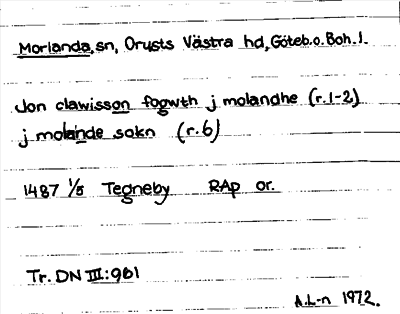 Morlanda, sn, Orusts Västra hd, Göteb.o.Boh.l.
Jon clawisson fogwth j molandhe (r.1-2)
j molande sokn (r.6)
1487 1/5 Tegneby RAp or.
Tr. DN III:961
A.L-n 1972.